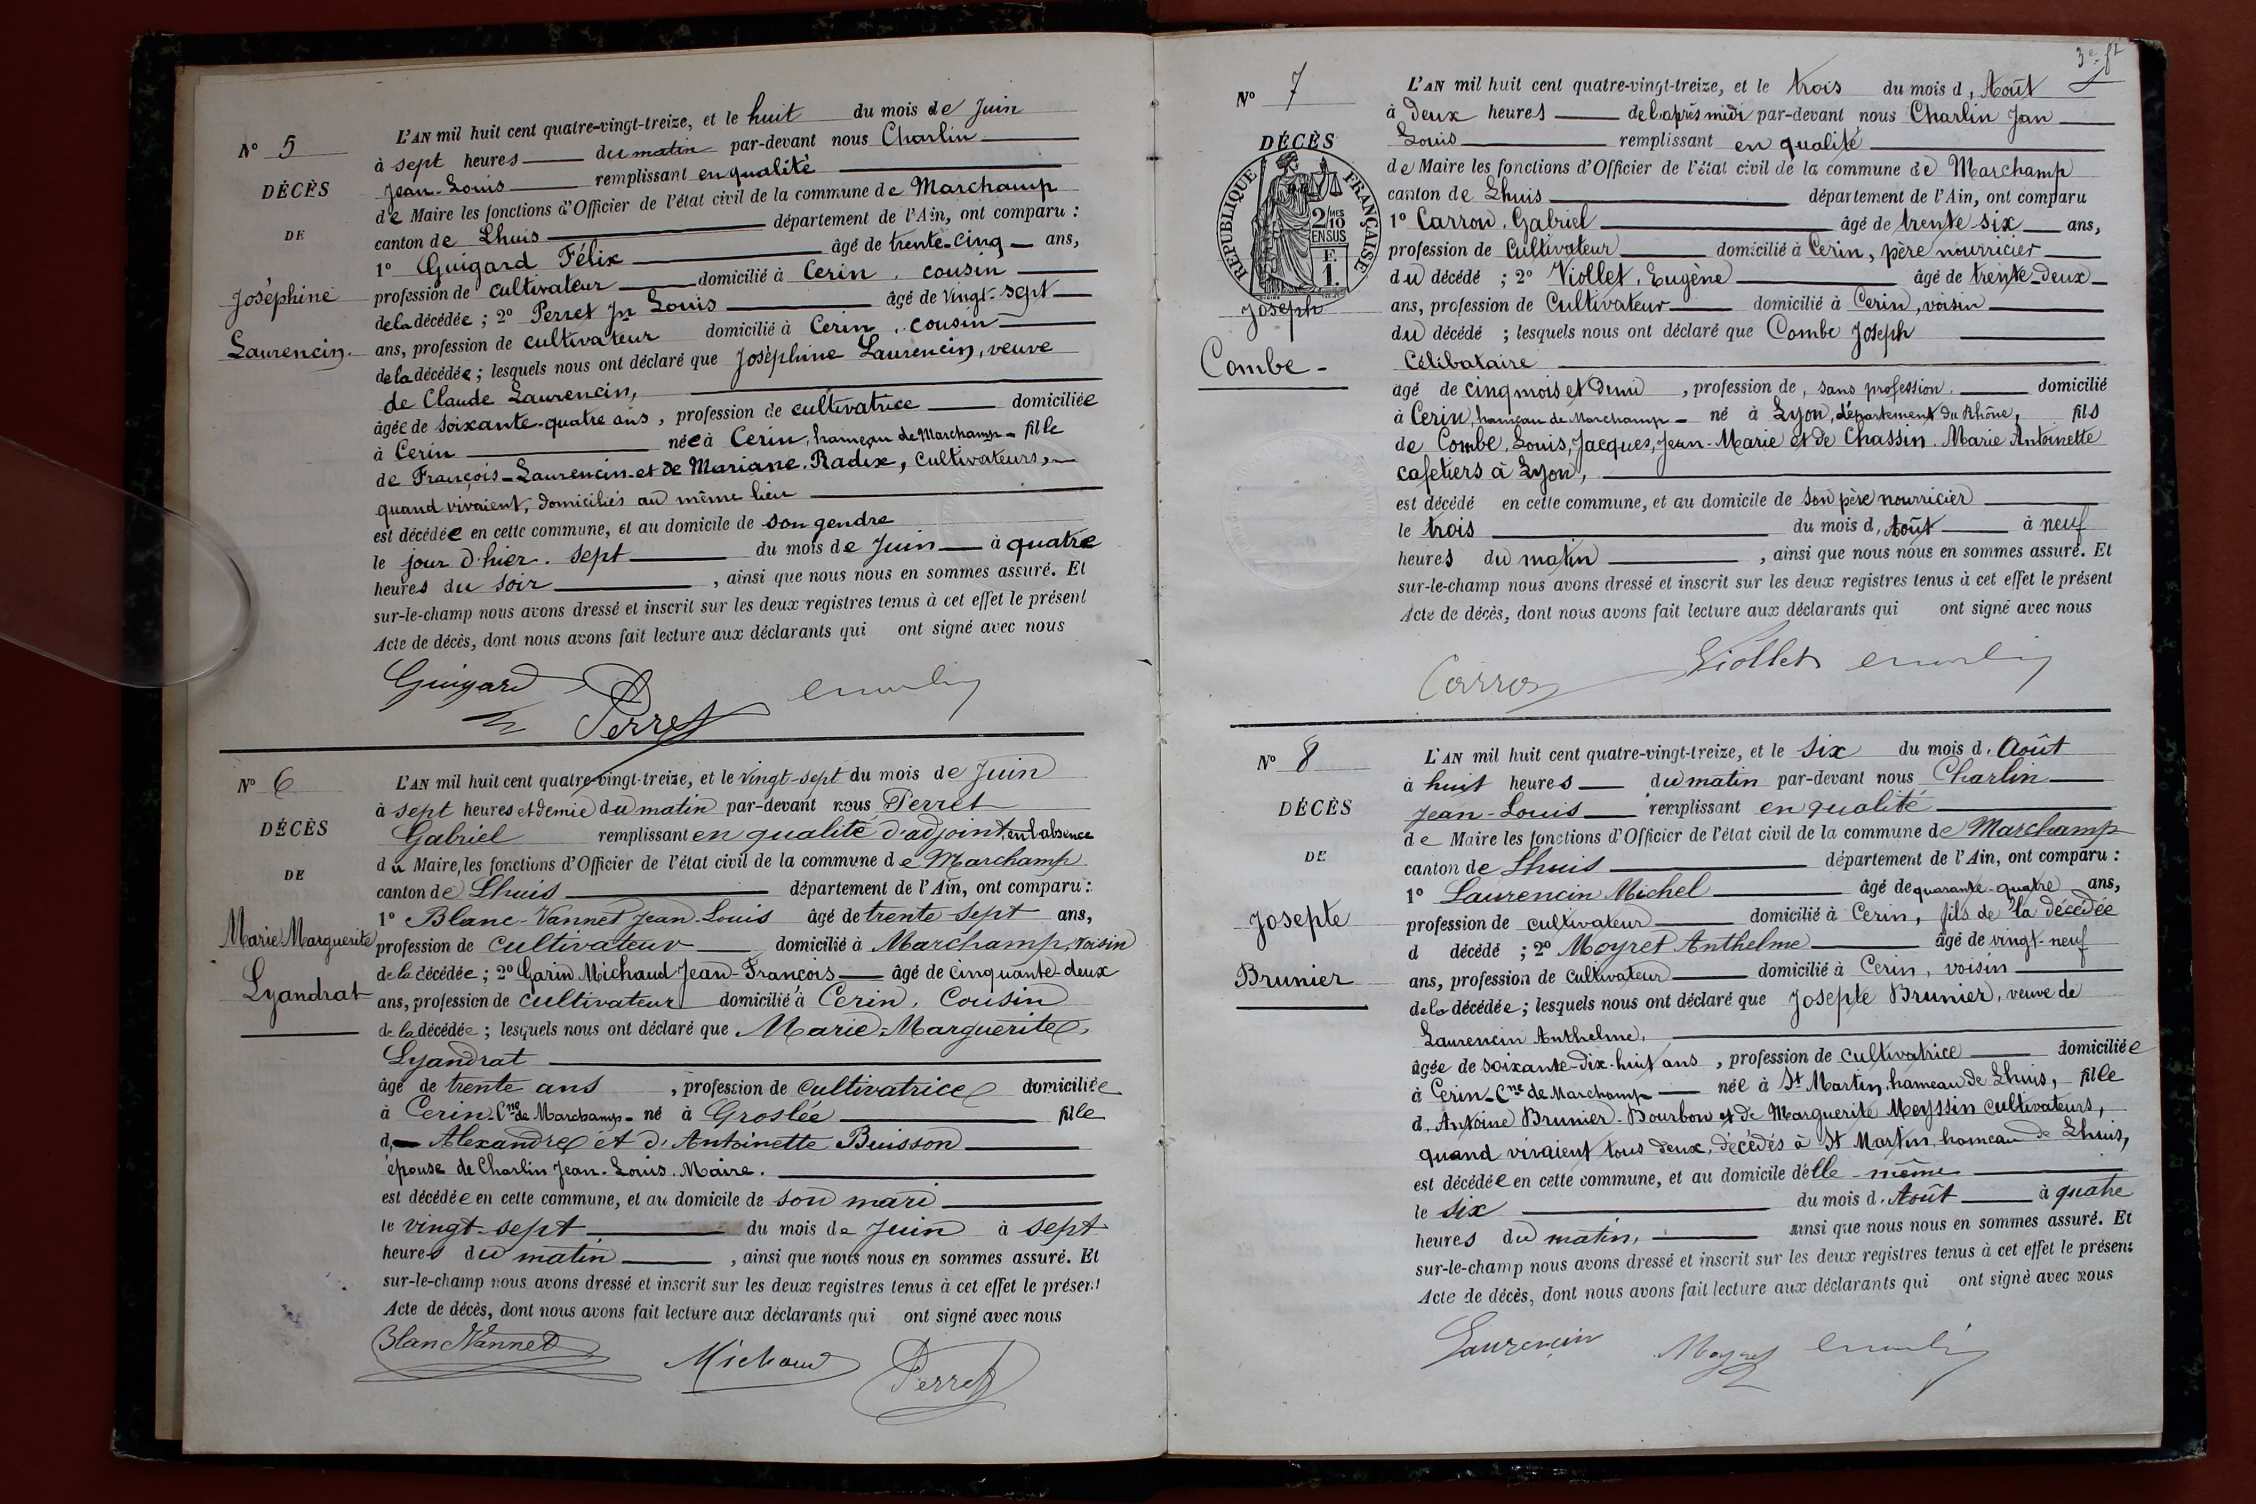 L'AN mil huit cent quatre-vingt-treize, et le huit du mois de Juin
N° 5
à sept heures du matin par-devant nous Charlin
Jean-Louis remplissant en qualité
DÉCÈS
de Maire les fonctions d'Officier de l'état civil de la commune de Marchamp
canton de Lhuis département de l'Ain, ont comparu :
DE
1° Guigard Félix âgé de trente-cinq ans,
profession de cultivateur domicilié à Cerin, cousin
Joséphine
de la décédée ; 2° Perret Jn Louis âgé de vingt-sept
ans, profession de cultivateur domicilié à Cerin, cousin
Laurencin
de la décédée ; lesquels nous ont déclaré que Joséphine Laurencin, veuve
de Claude Laurencin,
âgée de soixante-quatre ans, profession de cultivatrice domiciliée
à Cerin née à Cerin, hameau de Marchamp fille
de François Laurencin et de Mariane Radix, cultivateurs,
quand vivaient, domiciliés au même lieu
est décédée en cette commune, et au domicile de son gendre
le jour d'hier. sept du mois de Juin à quatre
heures du soir, ainsi que nous nous en sommes assuré. Et
sur-le-champ nous avons dressé et inscrit sur les deux registres tenus à cet effet le présent
Acte de décès, dont nous avons fait lecture aux déclarants qui ont signé avec nous
Guigard
Perret
N° 6
L'AN mil huit cent quatre-vingt-treize, et le vingt-sept du mois de Juin
à sept heures et demie du matin par-devant nous Perret
DÉCÈS
Gabriel remplissant en qualité d'adjoint, en l'absence
du Maire, les fonctions d'Officier de l'état civil de la commune de Marchamp
DE
canton de Lhuis département de l'Ain, ont comparu :
1° Blanc-Vannet Jean-Louis âgé de trente-sept ans,
Marie-Marguerite
profession de cultivateur domicilié à Marchamp, voisin
de la décédée ; 2° Garin Michaud Jean-François âgé de cinquante-deux
Lyandrat
ans, profession de cultivateur domicilié à Cerin, Cousin
de la décédée ; lesquels nous ont déclaré que Marie-Marguerite
Lyandrat
âgé de trente ans, profession de cultivatrice domiciliée
à Cerin Cne de Marchamp né à Groslée fille
d Alexandre et d'Antoinette Buisson
épouse de Charlin Jean-Louis. Maire.
est décédée en cette commune, et au domicile de son mari
le vingt-sept du mois de Juin à sept
heures du matin, ainsi que nous nous en sommes assuré. Et
sur-le-champ nous avons dressé et inscrit sur les deux registres tenus à cet effet le présent
Acte de décès, dont nous avons fait lecture aux déclarants qui ont signé avec nous
Blanc Vannet
Michaud
Perret
N° 7
L'AN mil huit cent quatre-vingt-treize, et le trois du mois d'Août
à deux heures de l'après midi par-devant nous Charlin Jean
DÉCÈS
Louis remplissant en qualité
de Maire les fonctions d'Officier de l'état civil de la commune de Marchamp
canton de Lhuis département de l'Ain, ont comparu
RÉPUBLIQUE FRANÇAISE
2/10 MES
EN SUS
F.
1.
1° Carron, Gabriel âgé de trente-six ans,
profession de Cultivateur domicilié à Cerin, père nourricier
du décédé ; 2° Viollet, Eugène âgé de trente-deux
Joseph
ans, profession de Cultivateur domicilié à Cerin, voisin
du décédé ; lesquels nous ont déclaré que Combe Joseph
Combe
Célibataire
agé de cinq mois et demi, profession de, sans profession. domicilié
à Cerin, hameau de Marchamp né à Lyon, département du Rhône, fils
de Combe, Louis, Jacques, Jean-Marie et de Chassin. Marie Antoinette
cafetiers à Lyon,
est décédé en cette commune, et au domicile de son père nourricier
le trois du mois d'Août à neuf
heures du matin, ainsi que nous nous en sommes assuré. Et
sur-le-champ nous avons dressé et inscrit sur les deux registres tenus à cet effet le présent
Acte de décès, dont nous avons fait lecture aux déclarants qui ont signé avec nous
Carron
Viollet
N° 8
L'AN mil huit cent quatre-vingt-treize, et le six du mois d'Août
à huit heures du matin par-devant nous Charlin
DÉCÈS
Jean-Louis remplissant en qualité
de Maire les fonctions d'Officier de l'état civil de la commune de Marchamp
DE
canton de Lhuis département de l'Ain, ont comparu :
1° Laurencin Michel âgé de quarante-quatre ans,
Josepte
profession de cultivateur domicilié à Cerin, fils de la décédée
d décédé ; 2° Moyret Anthelme âgé de vingt-neuf
Brunier
ans, profession de Cultivateur domicilié à Cerin, voisin
de la décédée ; lesquels nous ont déclaré que Josepte Brunier, veuve de
Laurencin Anthelme,
âgée de soixante-dix-huit ans, profession de cultivatrice domiciliée
à Cerin Cne de Marchamp née à St Martin, hameau de Lhuis, fille
d'Antoine Brunier-Bourbon et de Marguerite Meyssin cultivateurs,
quand vivaient tous deux, décédés à St Martin, hameau de Lhuis,
est décédée en cette commune, et au domicile d'elle-même
le six du mois d'Août à quatre
heures du matin, ainsi que nous nous en sommes assuré. Et
sur-le-champ nous avons dressé et inscrit sur les deux registres tenus à cet effet le présent
Acte de décès, dont nous avons fait lecture aux déclarants qui ont signé avec nous
Laurencin
Moyret